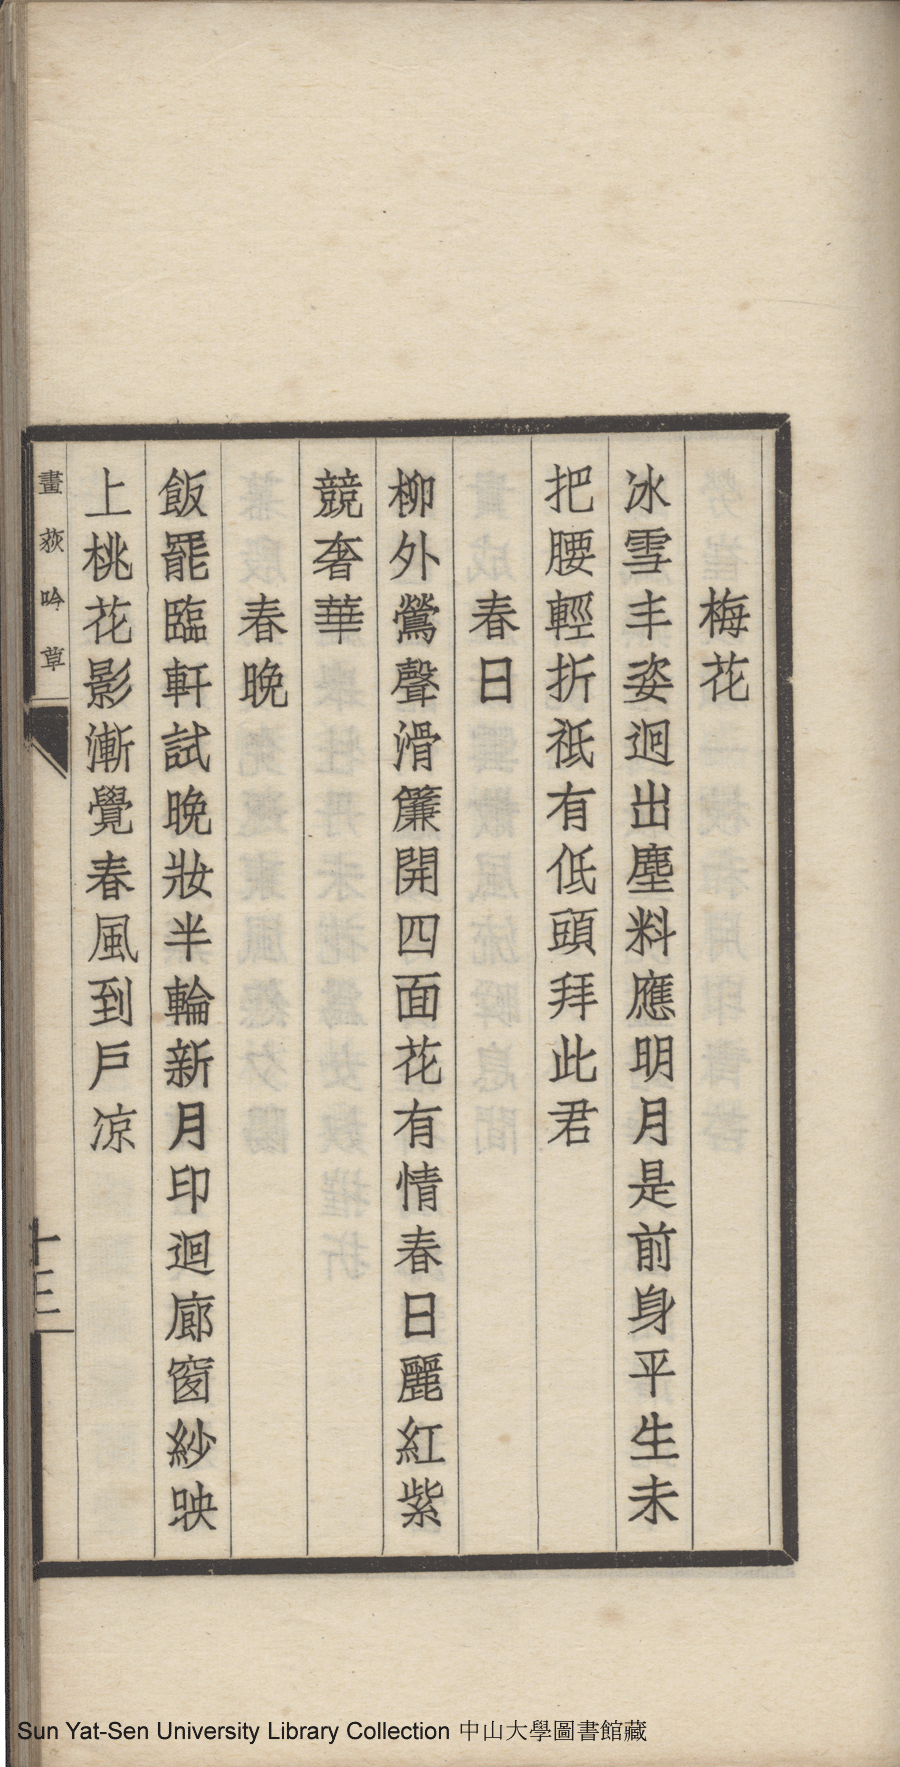 梅花
冰雪丰姿迥出塵料應明月是前身平生未
把腰輕折祇有低頭拜此君
春日
柳外鶯聲滑簾開四面花有情春日麗紅紫
競奢華
春晚
飯罷臨軒試晚妝半輪新月印迴廊窗紗映
上桃花影漸覺春風到戶凉
畫荻吟草
十三
Sun Yat-Sen University Library Collection 中山大學圖書館藏